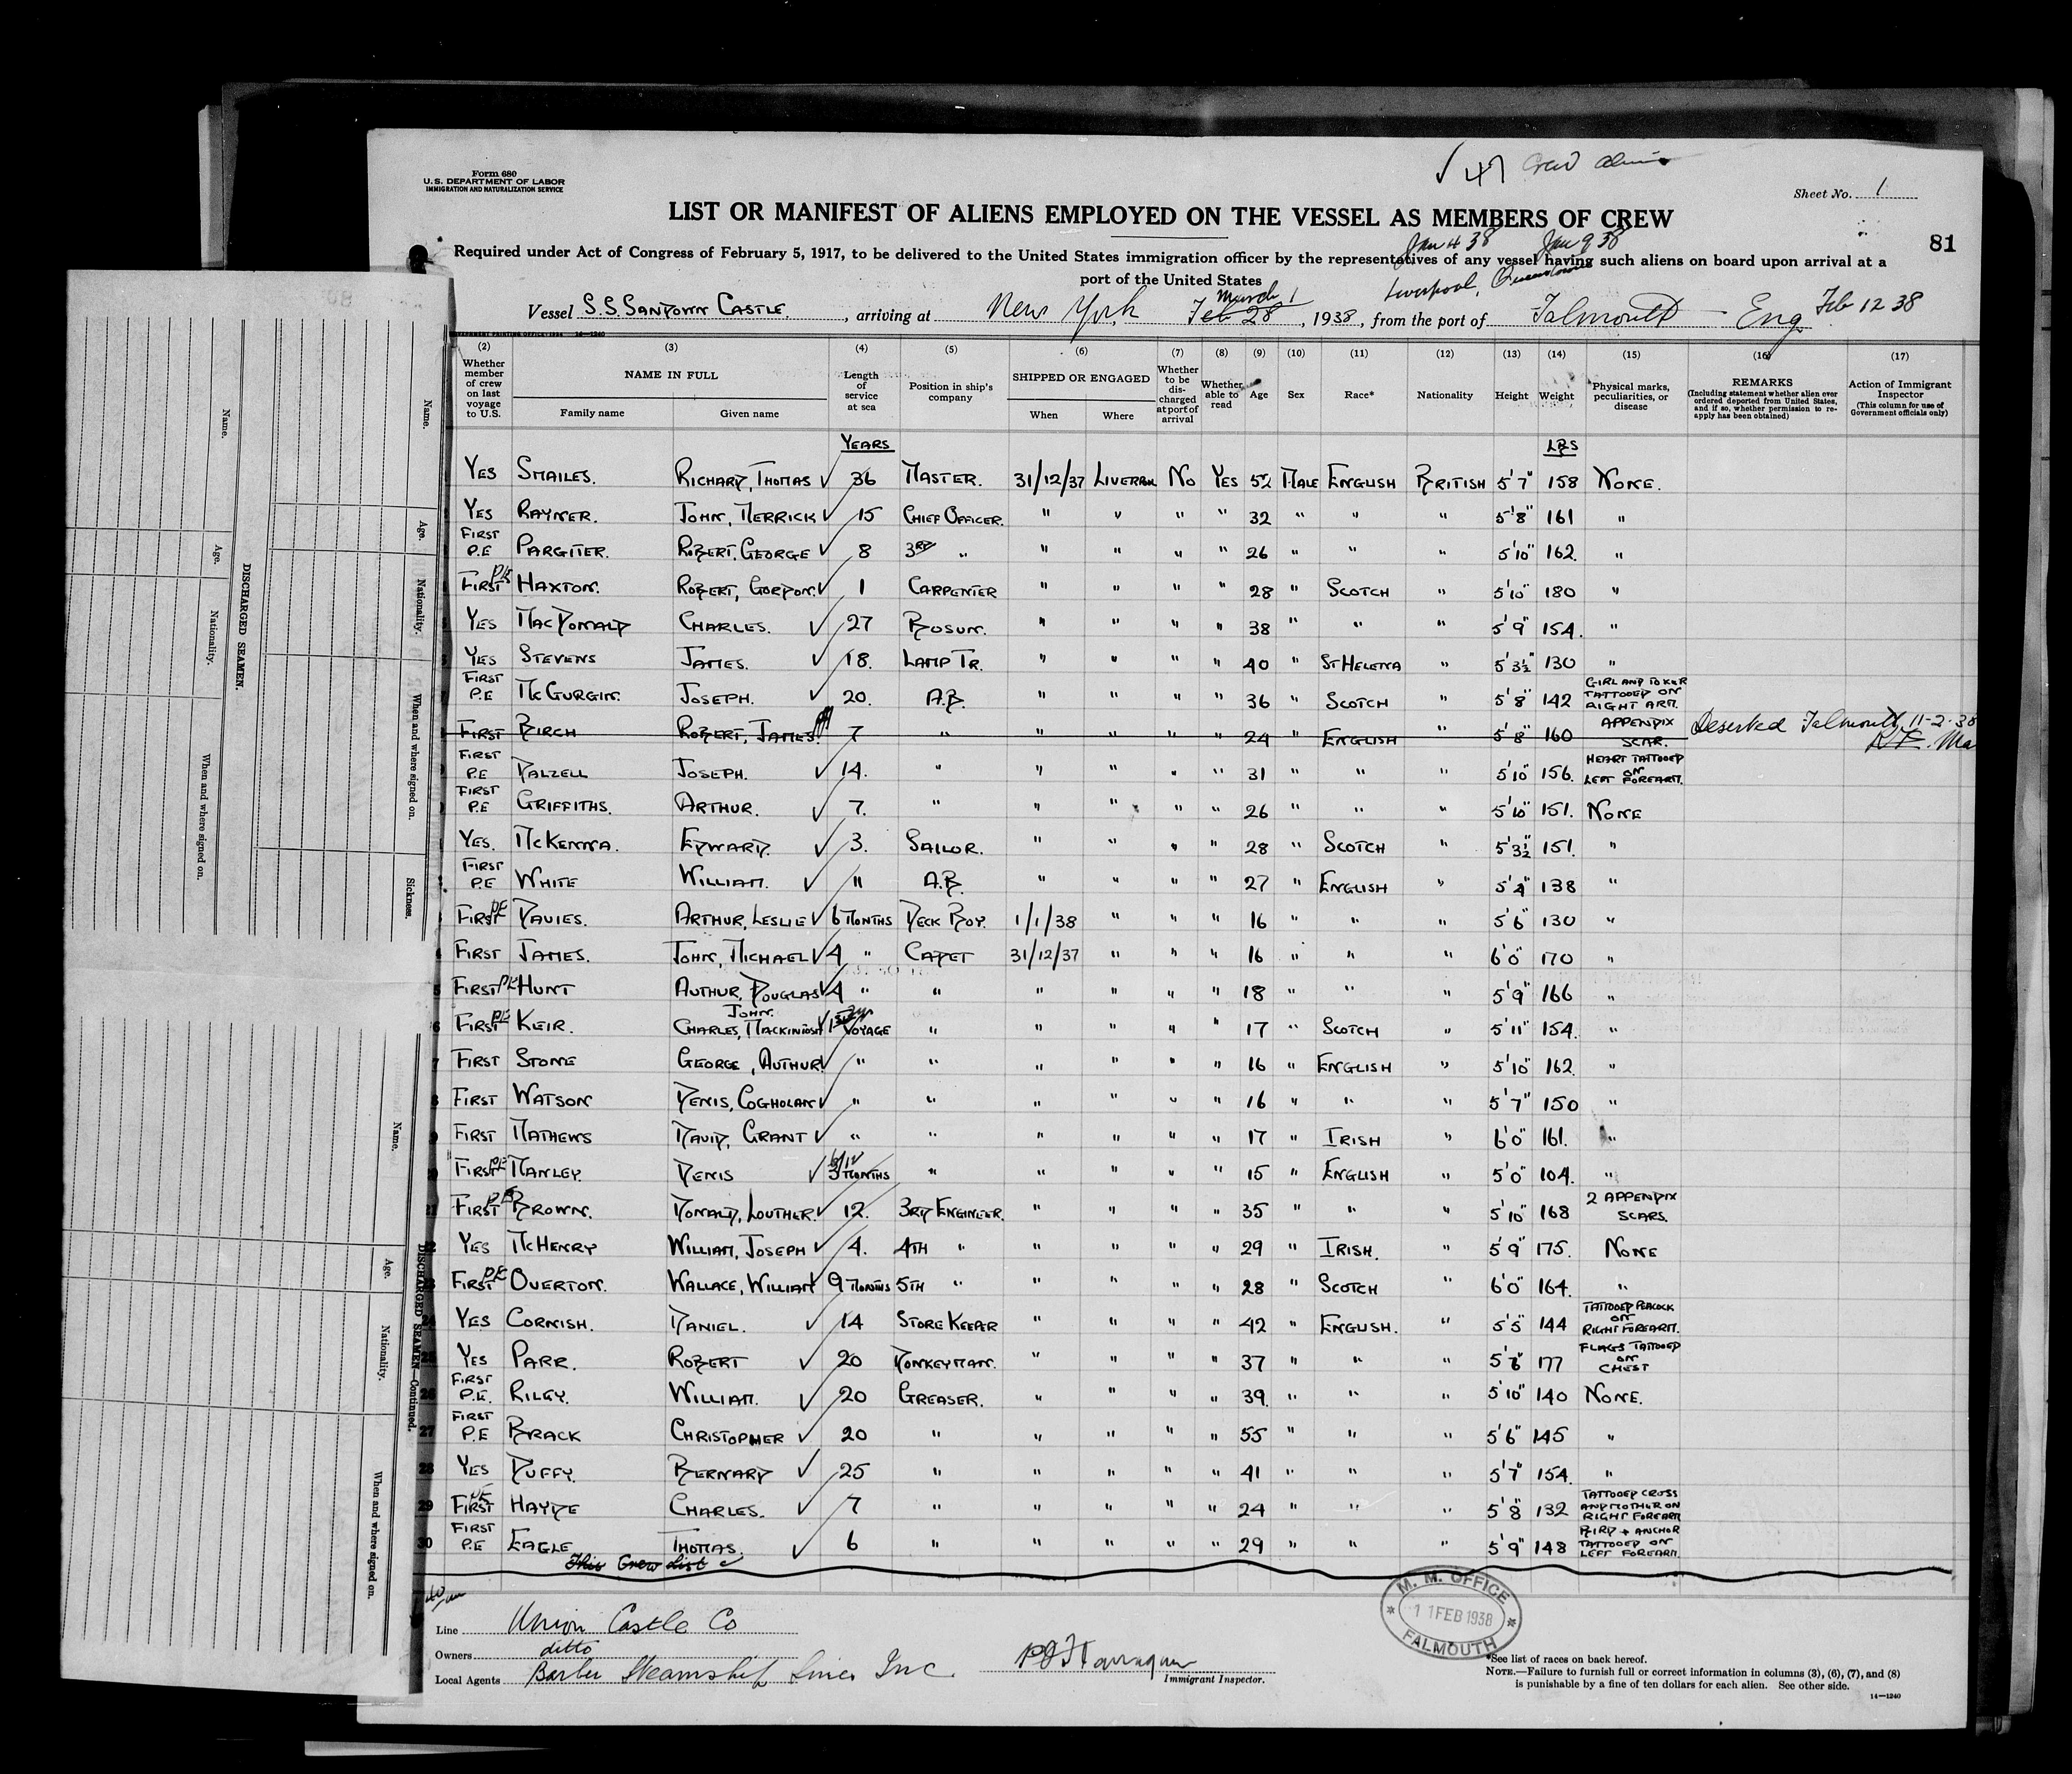 ✓ 47 Crew aliens
Form 680
U.S. DEPARTMENT OF LABOR
IMMIGRATION AND NATURALIZATION SERVICE
Sheet No. 1
LIST OR MANIFEST OF ALIENS EMPLOYED ON THE VESSEL AS MEMBERS OF CREW
81
Jan 4 38 Jan 9 38
Required under Act of Congress of February 5, 1917, to be delivered to the United States immigration officer by the representatives of any vessel having such aliens on board upon arrival at a
port of the United States
Liverpool, Queenstown
March 1
Vessel S.S. SANDOWN CASTLE., arriving at New York Feb 28, 1938, from the port of Falmouth — Eng. Feb 12 38
(2) (3) (4) (5) (6) (7) (8) (9) (10) (11) (12) (13) (14) (15) (16) (17)
Whether member of crew on last voyage to U.S.
NAME IN FULL
Family name
Given name
Length of service at sea
Position in ship's company
SHIPPED OR ENGAGED
When
Where
Whether to be discharged at port of arrival
Whether able to read
Age
Sex
Race*
Nationality
Height
Weight
Physical marks, peculiarities, or disease
REMARKS
(Including statement whether alien ever ordered deported from United States, and if so, whether permission to reapply has been obtained)
Action of Immigrant Inspector
(This column for use of Government officials only)
YEARS LBS
YES SMAILES. RICHARD, THOMAS ✓ 36 MASTER. 31/12/37 LIVERPOOL NO YES 52 MALE ENGLISH BRITISH 5'7" 158 NONE.
YES RAYNER. JOHN, MERRICK ✓ 15 CHIEF OFFICER. " " " " 32 " " " 5'8" 161 "
FIRST P.E PARGITER. ROBERT, GEORGE ✓ 8 3RD " " " " " 26 " " " 5'10" 162. "
FIRST PE HAXTON. ROBERT, GORDON. ✓ 1 CARPENTER " " " " 28 " SCOTCH " 5'10" 180 "
YES MACDONALD CHARLES. ✓ 27 BOSUN. " " " " 38 " " " 5'9" 154. "
YES STEVENS JAMES. ✓ 18. LAMP TR. " " " " 40 " ST HELENA " 5'3½" 130 "
FIRST P.E MCGURGIN. JOSEPH. ✓ 20. A.B. " " " " 36 " SCOTCH " 5'8" 142 GIRL AND TATTOOED ON RIGHT ARM.
FIRST BIRCH ROBERT, JAMES. 7 " " " " " 24 " ENGLISH " 5'8" 160 APPENDIX SCAR. Deserted Falmouth, 11-2-38
FIRST P.E DALZELL JOSEPH. ✓ 14. " " " " " 31 " " " 5'10" 156. HEART TATTOOED ON LEFT FOREARM.
FIRST P.E GRIFFITHS. ARTHUR. ✓ 7. " " " " " 26 " " " 5'10" 151. NONE
YES. MCKENNA. EDWARD. ✓ 3. SAILOR. " " " " 28 " SCOTCH " 5'3½" 151. "
FIRST P.E WHITE WILLIAM. ✓ " A.B. " " " " 27 " ENGLISH " 5'4" 138 "
FIRST PE DAVIES. ARTHUR, LESLIE ✓ 6 MONTHS DECK BOY. 1/1/38 " " " 16 " " " 5'6" 130 "
FIRST JAMES. JOHN, MICHAEL ✓ 4 " CADET 31/12/37 " " " 16 " " " 6'0" 170 "
5 FIRST PE HUNT AUTHUR, DOUGLAS ✓ 4 " " " " " " 18 " " " 5'9" 166 "
6 FIRST PE KEIR. JOHN. CHARLES, MACKINTOSH ✓ 1ST VOYAGE " " " " " 17 " SCOTCH " 5'11" 154. "
7 FIRST STONE GEORGE, AUTHUR ✓ " " " " " " 16 " ENGLISH " 5'10" 162. "
8 FIRST WATSON DENIS, COGHOLAN ✓ " " " " " " 16 " " " 5'7" 150 "
9 FIRST MATHEWS DAVID, GRANT ✓ " " " " " " 17 " IRISH " 6'0" 161. "
20 FIRST PE MANLEY. DENIS ✓ 3 MONTHS " " " " " 15 " ENGLISH " 5'0" 104. "
21 FIRST PE BROWN. DONALD, LOUTHER. ✓ 12. 3RD ENGINEER. " " " " 35 " " " 5'10" 168 2 APPENDIX SCARS.
22 YES MCHENRY WILLIAM, JOSEPH ✓ 4. 4TH " " " " " 29 " IRISH. " 5'9" 175. NONE
23 FIRST PE OVERTON. WALLACE, WILLIAM ✓ 9 MONTHS 5TH " " " " " 28 " SCOTCH " 6'0" 164. "
24 YES CORNISH. DANIEL. ✓ 14 STORE KEEPER " " " " 42 " ENGLISH. " 5'5" 144 TATTOOED PEACOCK ON RIGHT FOREARM.
25 YES PARR. ROBERT ✓ 20 DONKEYMAN. " " " " 37 " " " 177 FLAGS TATTOOED ON CHEST
26 FIRST P.E. RILEY. WILLIAM. ✓ 20 GREASER. " " " " 39. " " " 5'10" 140 NONE.
27 FIRST P.E BRACK CHRISTOPHER ✓ 20 " " " " " 55 " " " 5'6" 145 "
28 YES DUFFY. BERNARD ✓ 25 " " " " " 41 " " " 5'7" 154. "
29 FIRST PE HAYDE CHARLES. ✓ 7 " " " " " 24 " " " 5'8" 132 TATTOOED CROSS AND MOTHER ON RIGHT FOREARM
30 FIRST P.E EAGLE THOMAS. ✓ 6 " " " " " 29 " " " 5'9" 148 BIRD + ANCHOR TATTOOED ON LEFT FOREARM.
This Crew List
Line Union Castle Co
Owners ditto
Local Agents Barber Steamship Lines Inc.
Immigrant Inspector.
M. M. OFFICE
11 FEB 1938
FALMOUTH
*See list of races on back hereof.
NOTE.—Failure to furnish full or correct information in columns (3), (6), (7), and (8)
is punishable by a fine of ten dollars for each alien. See other side.
14—1240
DISCHARGED SEAMEN.
Name.
Age.
Nationality.
When and where signed on.
Name.
Age.
Nationality.
When and where signed on.
Sickness.
DISCHARGED SEAMEN—Continued.
Name.
Age.
Nationality.
When and where signed on.